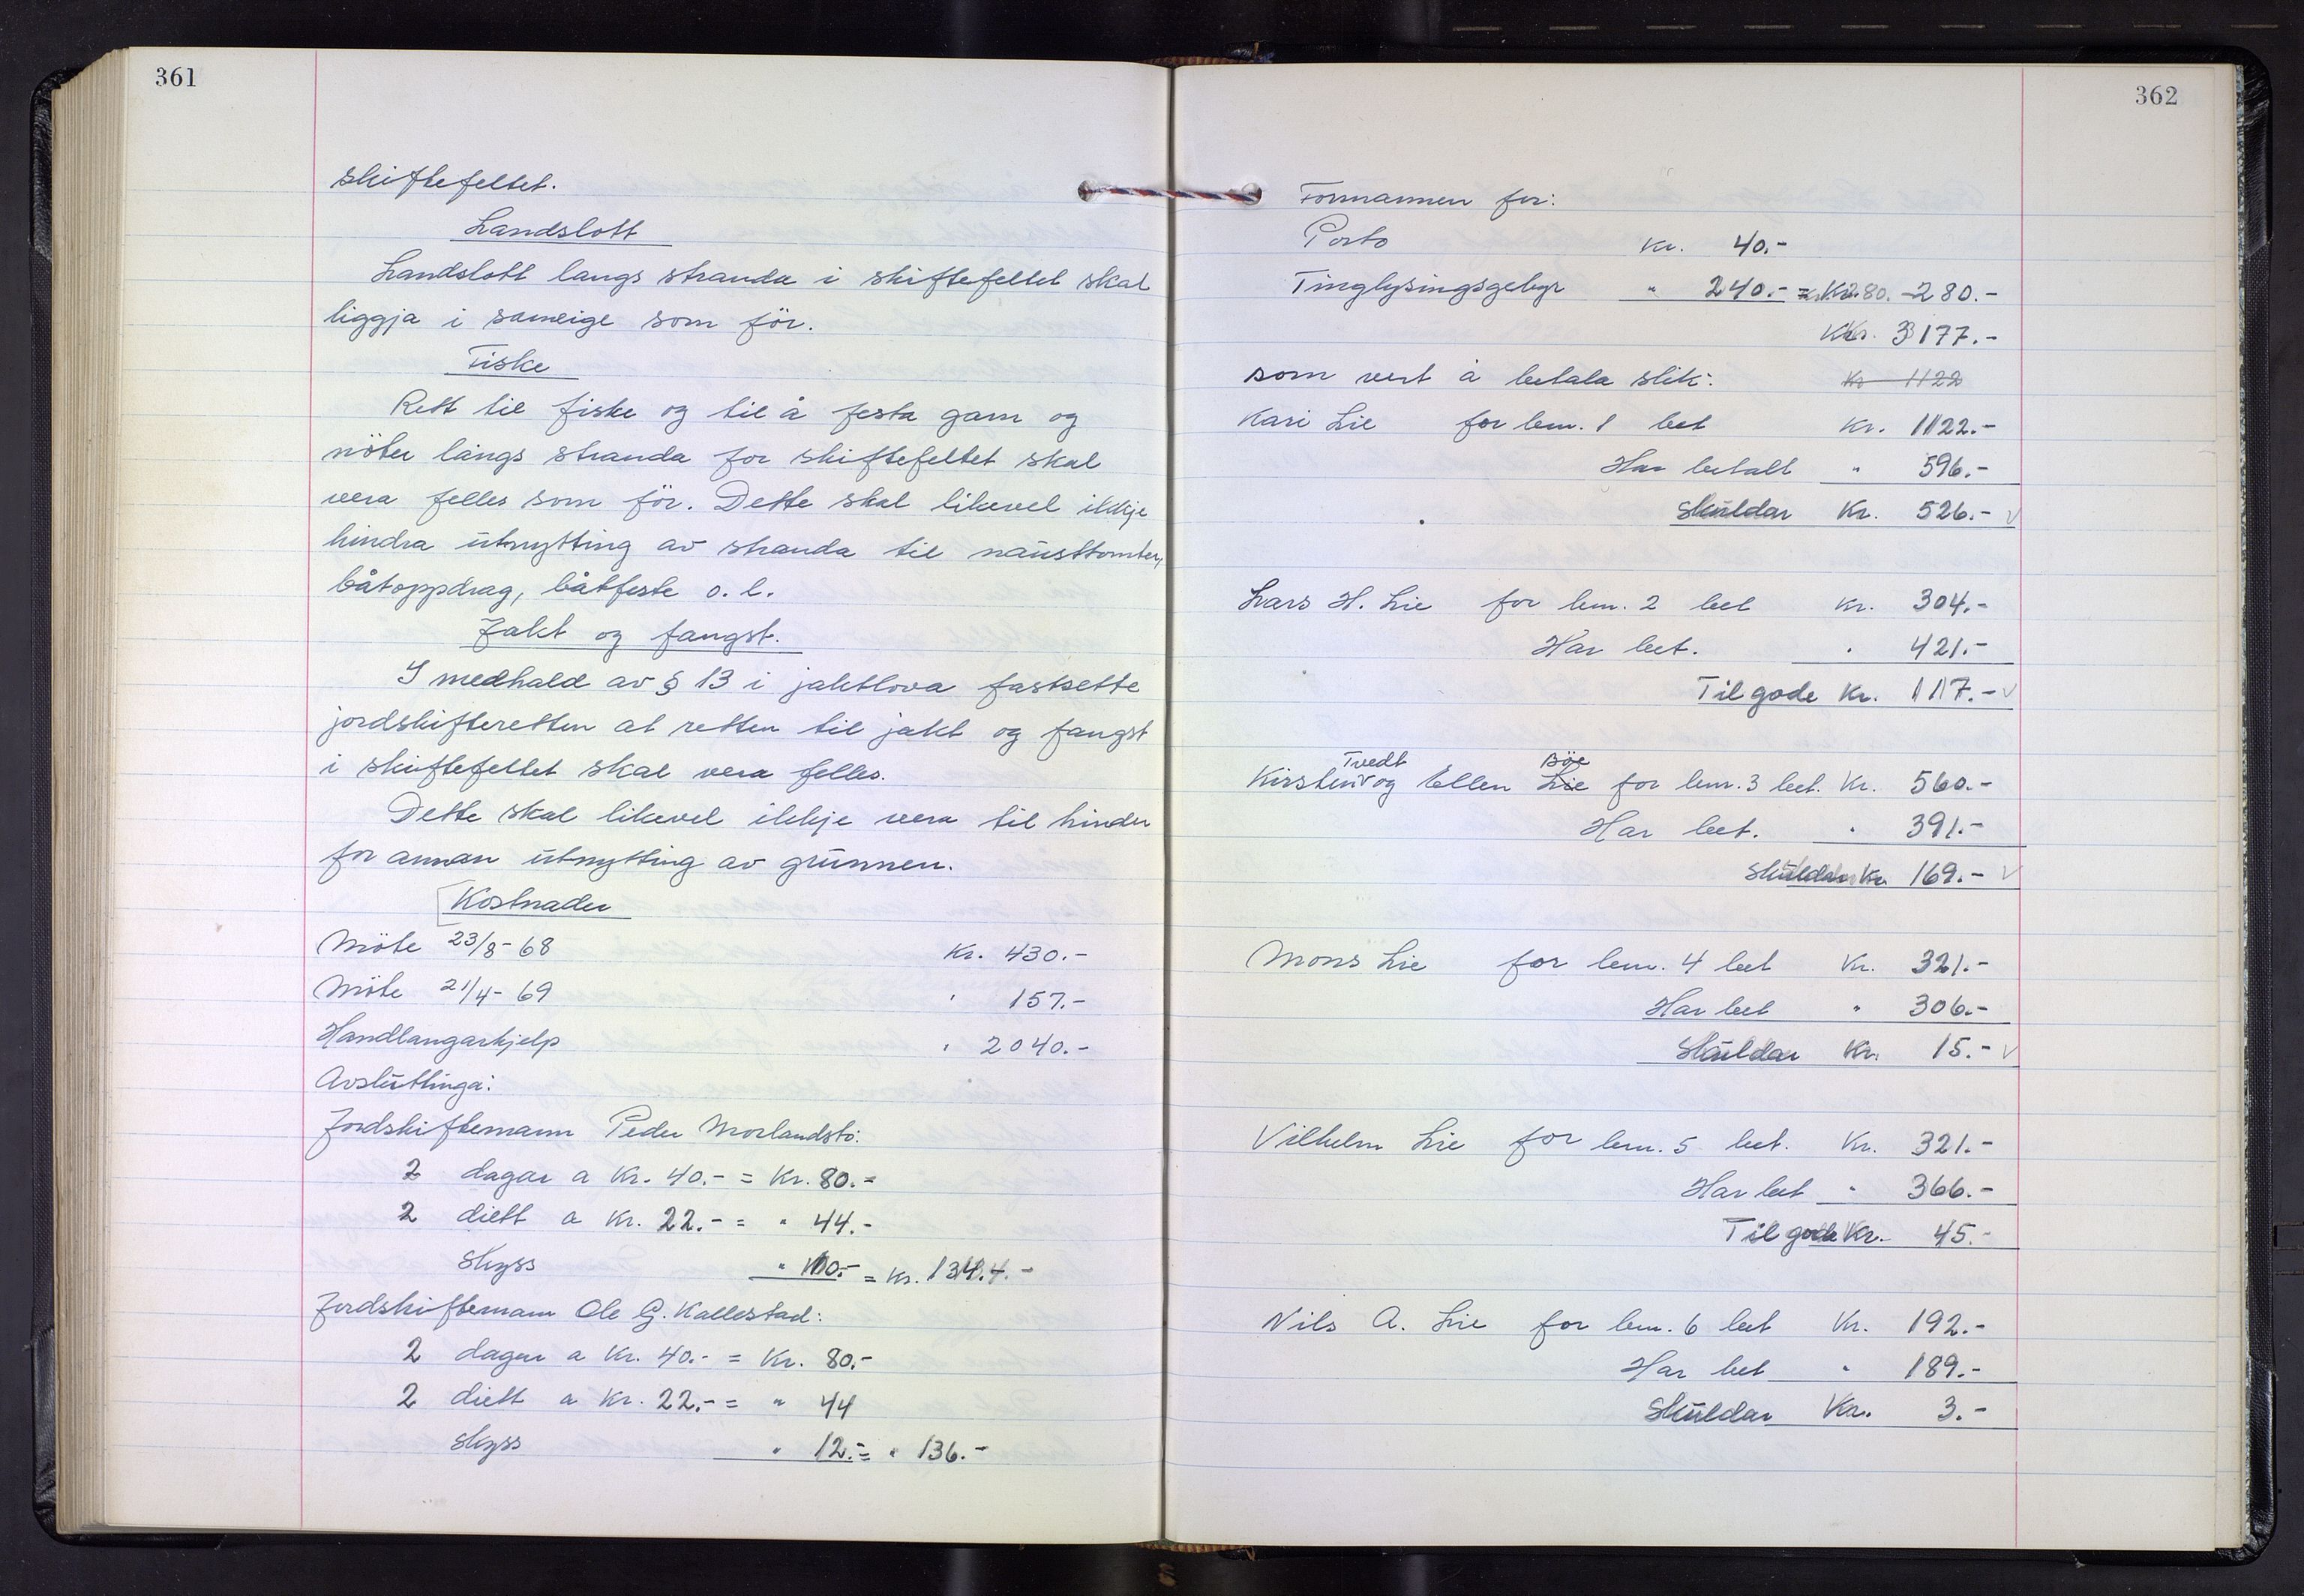 361
skiftefeltet.
Landslott
Landslott langs stranda i skiftefeltet skal
liggja i sameige som för.
Fiske
Rett til fiske og til å festa garn og
nöter langs stranda for skiftefeltet skal
vera felles som för. Dette skal likevel ikkje
hindra utnytting av stranda til nausttomter,
båtoppdrag, båtfeste o.l.
Jakt og fangst.
I medhald av § 13 i jaktlova fastsette
jordskifteretten at retten til jakt og fangst
i skiftefeltet skal vera felles.
Dette skal likevel ikkje vera til hinder
for annan utnytting av grunnen.
Kostnader
Möte 23/8-68 Kr. 430.-
Möte 21/4-69 " 157.-
Handlangarhjelp " 2040.-
Avsluttinga:
Jordskiftemann Peder Morlandstö:
2 dagar a Kr. 40.- = Kr. 80.-
2 diett a Kr. 22.- = " 44.-
Skyss " 10.- = Kr. 134.-
Jordskiftemann Ole G. Kallestad:
2 dagar a Kr. 40.- = Kr. 80.-
2 diett a Kr. 22.- = " 44
Skyss " 12.- = " 136.-
362
Formannen for:
Porto Kr. 40.-
Tinglysingsgebyr " 240.- = Kr. 280.-
Kr. 3177.-
som vert å betala slik: Kr 1122
Kari Lie for lnr. 1 bet Kr. 1122.-
Har betalt " 596.-
Skuldar Kr. 526.- v
Lars H. Lie for lnr. 2 bet Kr. 304.-
Har bet. " 421.-
Til gode Kr. 117.- v
Tvedt Böe
Kirsten v og Ellen Lie for lnr. 3 bet. Kr. 560.-
Har bet. " 391.-
Skuldar Kr 169.- v
Mons Lie for lnr. 4 bet Kr. 321.-
Har bet " 306.-
Skuldar Kr. 15.- v
Vilhelm Lie for lnr. 5 bet. Kr. 321.-
Har bet " 366.-
Til gode Kr. 45.-
Nils A. Lie for lnr. 6 bet Kr. 192.-
Har bet " 189.-
Skuldar Kr. 3.-